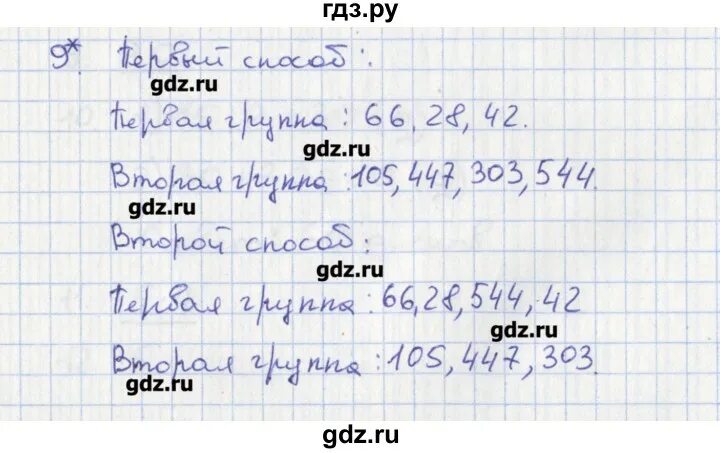 гдз.ру
9* Первый способ:
gdz.ru
Первая группа: 66, 28, 42.
gdz.ru
Вторая группа: 105, 447, 303, 544.
gdz.ru
Второй способ:
gdz.ru
Первая группа: 66, 28, 544, 42
gdz.ru
Вторая группа: 105, 447, 303.
gdz.ru
gdz.ru